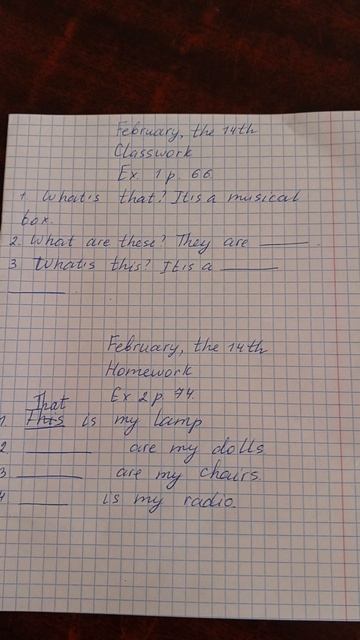 February, the 14th
Classwork
Ex 1 p. 66.
1 What's that? It is a musical
box.
2. What are these? They are ______.
3 What's this? It is a ______
______
February, the 14th
Homework
Ex 2 p 74.
That
1. This is my lamp
2 ______ are my dolls
3 ______ are my chairs.
4 ______ is my radio.